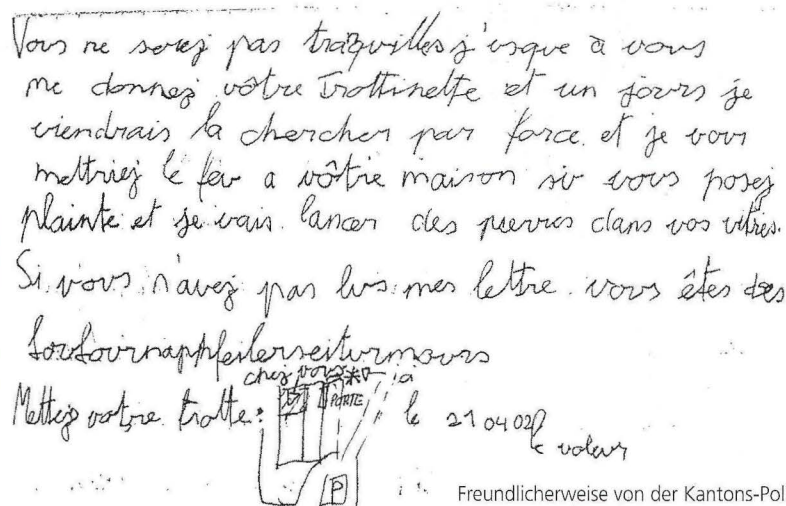 Vous ne serez pas traquilles j'usque à vous
me donnez vôtre Trottinette et un jours je
viendrais la chercher par force. et je vous
mettriez le feu a vôtre maison si vous posez
plainte et je vais lancer des pierres dans vos vitres.
Si vous n'avez pas lus mes lettre vous êtes des
chez vous
Mettez votre trotte: PORTE là le 21 04 02
le voleur
P
Freundlicherweise von der Kantons-Pol